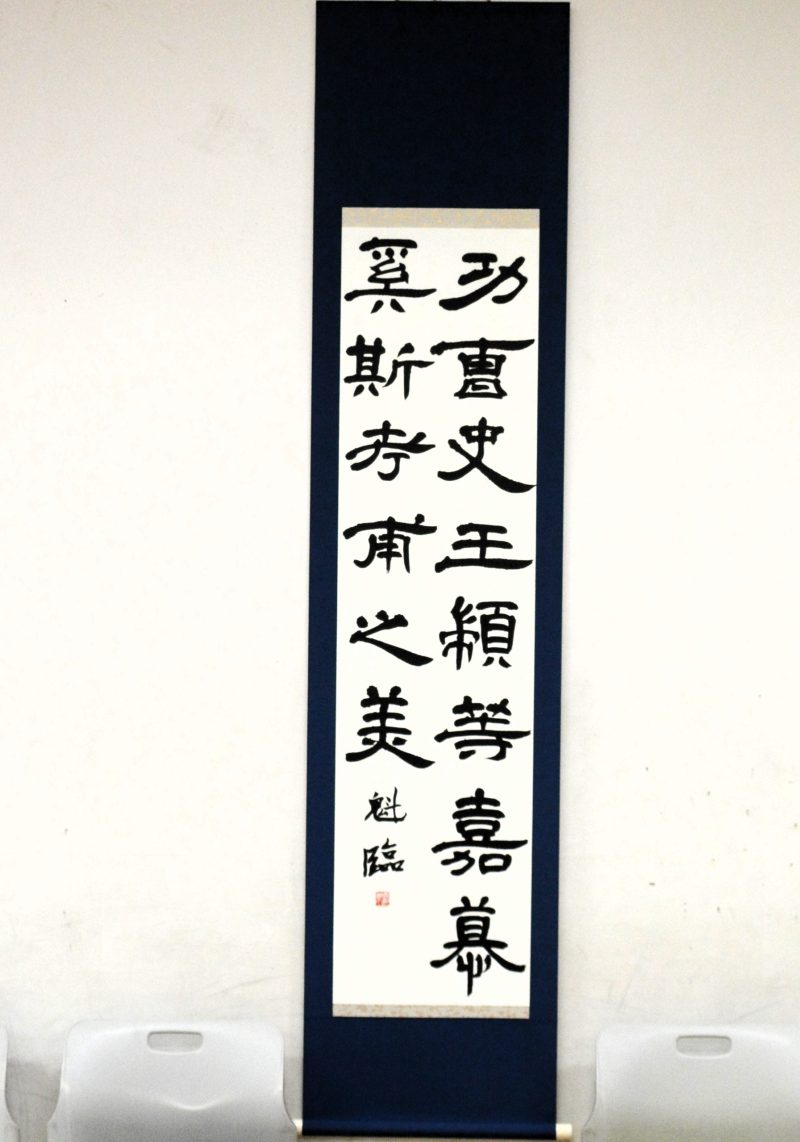 功曹史王顈等嘉慕
奚斯考甫之美
魁臨